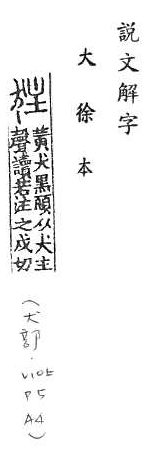 說文解字
大徐本
㹥
黃犬黑頭从犬主
聲讀若注之戍切
(犬部. VIDE P5 A4)